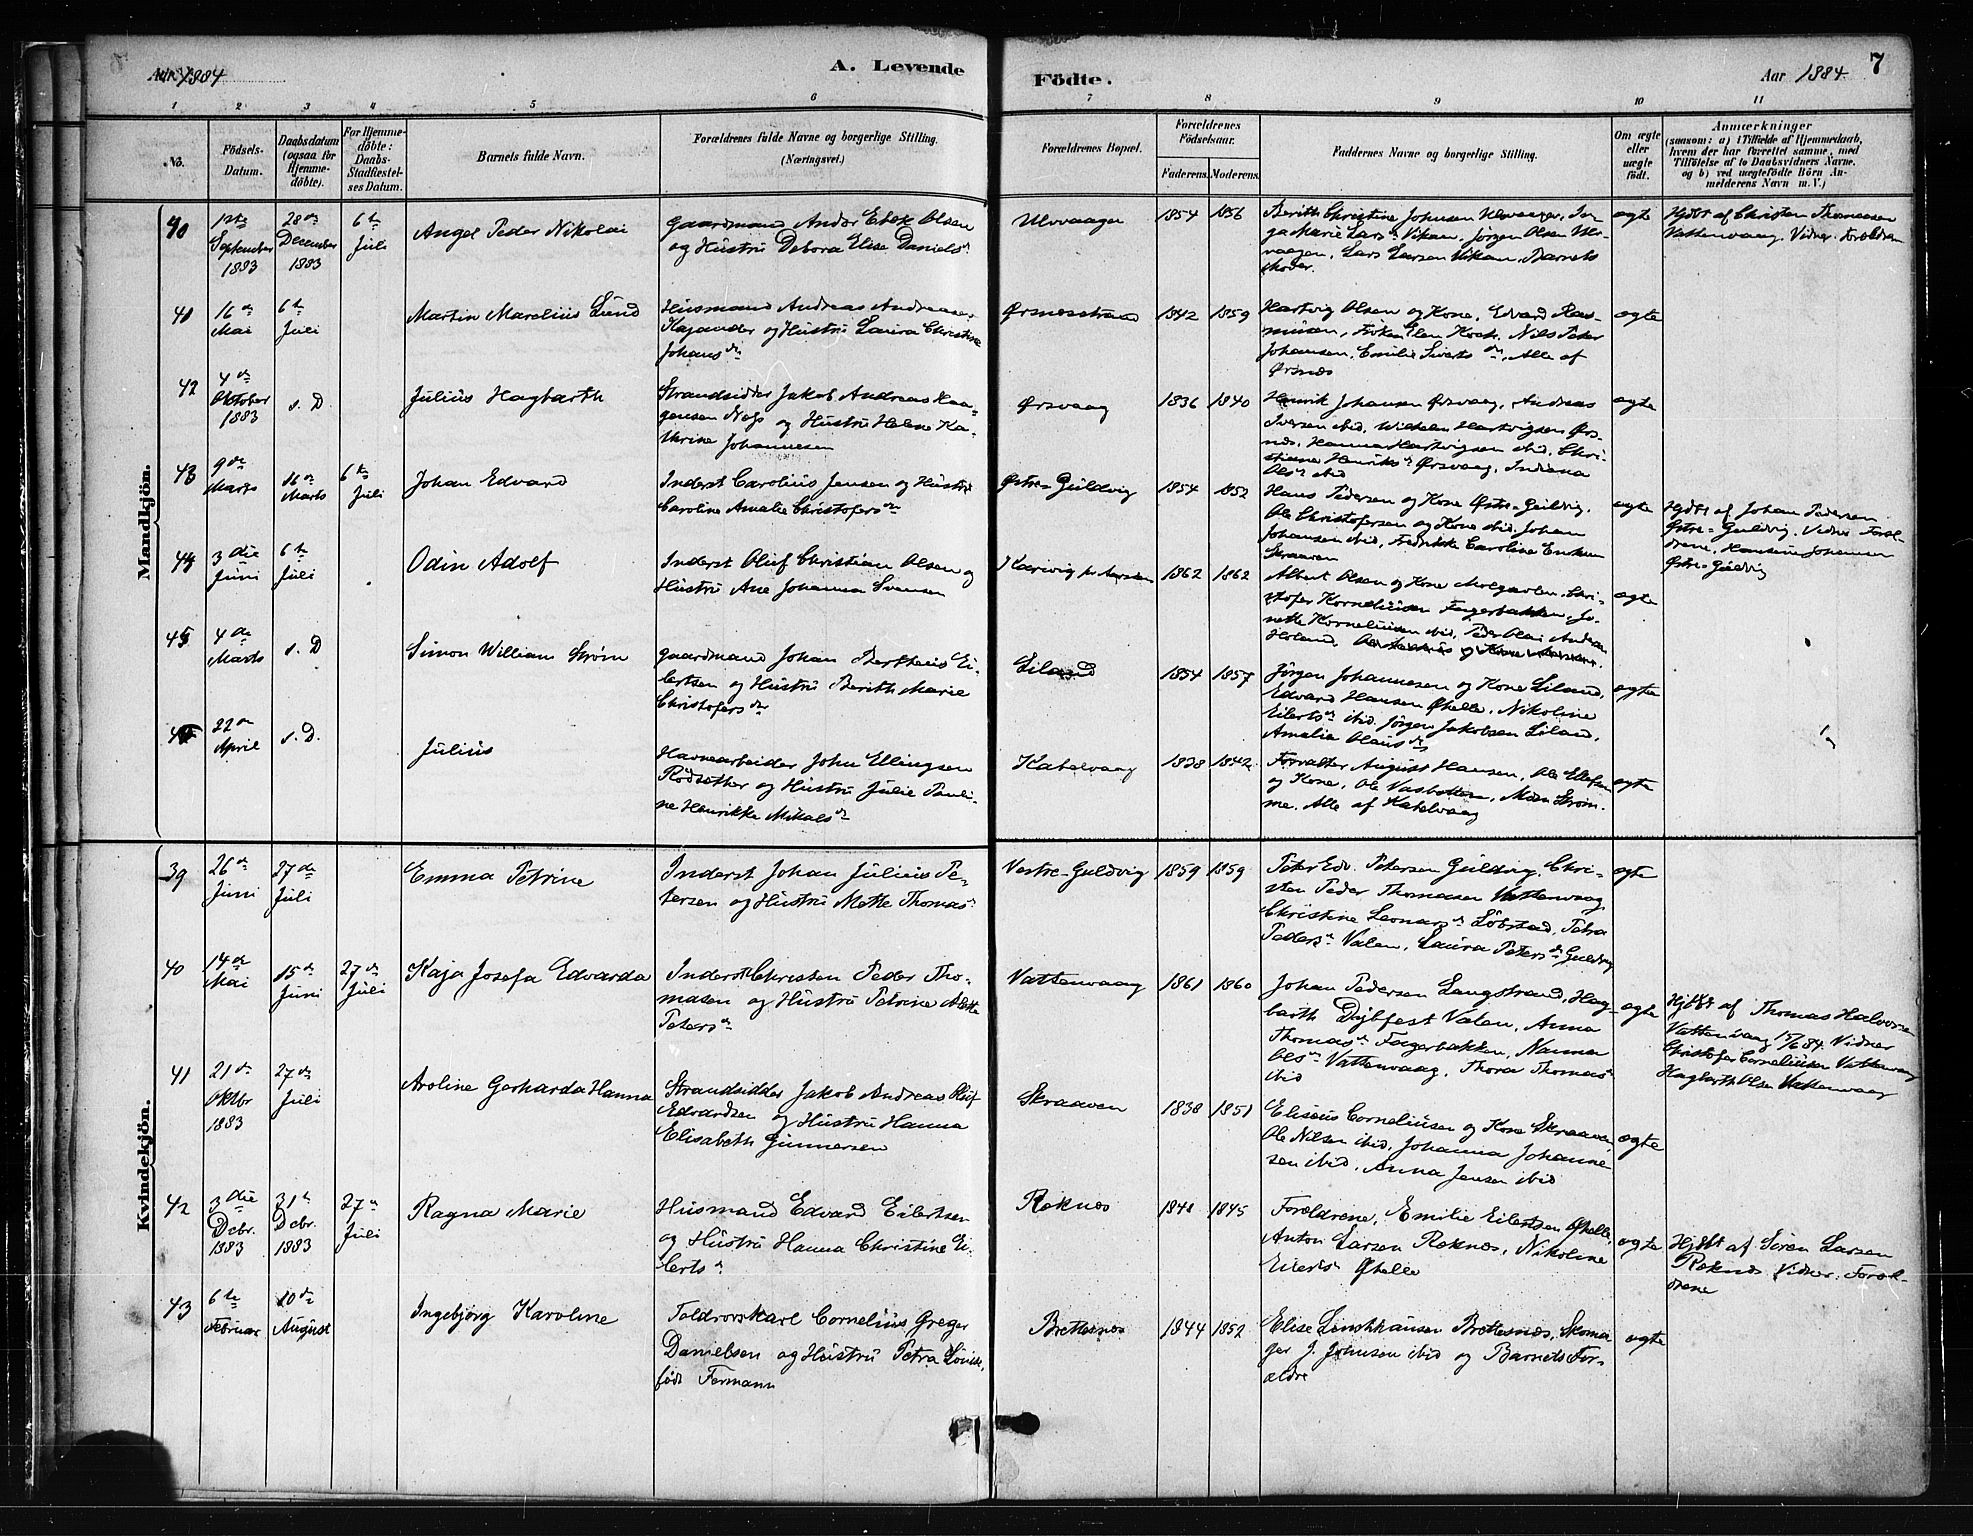 Aar 1884
A. Levende
Födte.
Aar 1884.
7
1 2 3 4 5 6 7 8 9 10 11
No.
Födsels-
Datum.
Daabsdatum
(ogsaa for
Hjemme-
döbte).
For Hjemme-
döbte:
Daabs-
Stadfæstel-
ses Datum.
Barnets fulde Navn.
Forældrenes fulde Navne og borgerlige Stilling.
(Næringsvei.)
Forældrenes Bopæl.
Forældrenes
Födselsaar.
Faderens. Moderens.
Faddernes Navne og borgerlige Stilling.
Om ægte
eller
uægte
födt.
Anmærkninger
(saasom: a) i Tilfælde af Hjemmedaab,
hvem der har forrettet samme, med
Tilföielse af to Daabsvidners Navne.
og b) ved uægtefödte Börn An-
melderens Navn m. V.)
Mandkjön.
40
1ste
September
1883
28de
December
1883
6te
Juli
Angel Peder Nikolai
Gaardmand Andor Ebek Olsen
og Hustru Debora Elise Daniels
Ulvvaagen
1854 1856
Berith Christine Johnsen Ulvvaagen, In-
ga Marie Lars Vikan, Jørgen Olsen Ul-
vaagen, Lars Larsen Vikan, Barnets
Moder.
ægte
Hjdbt af Christen Thomassen
Vattenvaag. Vidner: Forældrene
41
16de
Mai
6te
Juli
Martin Marelius Lund
Husmand Andreas Andreasen
Kajander og Hustru Laura Christine
Johans dr
Ørsnesstrand
1842 1859
Hartvig Olsen og Kone, Edvard Ras-
mussen, Frøken Elen Koch, Nils Peter
Johansen, Emilie Siverts dr, Alle af
Ørsnes
ægte
42
4de
Oktober
1883
s. D.
Julius Hagbarth
Strandsidder Jakob Andreas Haa-
gensen Næss og Hustru Helene Ka-
thrine Johannesen
Ørsvaag
1836 1840
Henrik Johansen Ørsvaag, Andreas
Iversen ibid, Wilhelm Hartvigsen Ørs-
næs, Hanna Hartvigsen ibid, Chri-
stiane Henriks Ørsvaag, Indiana
Ols ibid
ægte
43
9de
Marts
16de
Marts
6te
Juli
Johan Edvard
Inderst Carolius Jensen og Hustru
Caroline Amalie Christofers dr
Østre-Guldvig
1854 1852
Hans Pedersen og Kone Østre-Guldvig,
Ole Christofersen og Kone ibid, Johan
Johansen ibid, Fredrikke Caroline Eriksen
Skraaven
ægte
Hjdbt af Johan Pedersen
Østre-Guldvig, Vidner Foræl-
drene, Hansine Johansen
Østre-Guldvig
44
3die
Juni
6te
Juli
Odin Adolf
Inderst Oluf Christian Olsen og
Hustru Ane Johanna Svensen
1862 1862
Albert Olsen og Kone Molgaarden, Chri-
stofer Korneliusen Fagerbakken, Ja-
nette Korneliusen ibid, Peder Olai Andersen
Holand,
ægte
45
4de
Marts
s. D
Simon William Strøm
Gaardmand Johan Bertheus Ei-
lertsen og Hustru Berith Marie
Christofers dr
Liland
1854 1857
Jørgen Johannesen og Kone Liland,
Edvard Hansen Ørhelle, Nikoline
Eilerts dr ibid, Jørgen Jakobsen Liland,
Amalia Olaus dr
ægte
22de
April
s. D.
Julius
Havnearbeider John Ellingsen
Rødsether og Hustru Julie Pauli-
ne Henrikke Mikals dr
Kabelvaag
1838 1842
Forvalter August Hansen, Ole Ellefsen
og Kone, Ole Vasbotten, Moen Strøm-
me, Alle af Kabelvaag
ægte
Kvindekjön.
39
26de
Juni
27de
Juli
Emma Petrine
Inderst Johan Julius Pe-
tersen og Hustru Mette Thomas
Vestre-Guldvig
1859 1859
Peter Edv. Petersen Guldvig, Chri-
sten Peder Thomasen Vattenvaag
Christine Leonars Løbstad, Petra
Peders Valen, Laura Peters dr Guldvig
ægte
40
14de
Mai
15de
Juni
27de
Juli
Kaja Josefa Edvarda
Inderst Christen Peder Tho-
masen og Hustru Petrine Alette
Peters dr
Vattenvaag
1861 1860
Johan Pedersen Langstrand, Hag-
barth Dybfest Valen, Anna
Thomas dr Fagerbakken, Nanna
Ols Vattenvaag, Thora Thomas
ibid
ægte
Hjdbt af Thomas Halvorsen
Vattenvaag 15/6 84. Vidner
Christofer Corneliusen Vattenvaag
Hagbarth Olsen Vattenvaag
41
21de
Oktbr
1883
27de
Juli
Aroline Gerharda Hanna
Strandsidder Jakob Andreas Oluf
Edvardsen og Hustru Hanna
Elisabeth Gunnersen
Skraaven
1838 1851
Eliseus Corneliusen og Kone Skraaven,
Ole Nilsen ibid, Johanna Johanne-
sen ibid, Anna Jensen ibid
ægte
42
3die
Debr.
1883
31te
Debr.
1883
27de
Juli
Ragna Marie
Husmand Edvard Eilertsen
og Hustru Hanna Christine Ei-
lerts dr
Røknes
1841 1845
Forældrene, Emilie Eilertsen Ørhelle,
Anton Larsen Røknes, Nikoline
Eilerts Ørhelle
ægte
Hjdbt af Sören Larsen
Røknes Vidner: Foræl-
drene
43
6te
Februar
10de
August
Ingebjørg Karoline
Toldrorskarl Cornelius Greger
Danielsen og Hustru Petra Louise,
født Fermann
Brettesnæs
1844 1852
Elise Linchhausen Brettesnæs, Skoma-
ger J. Johnsen ibid og Barnets For-
ældre
ægte